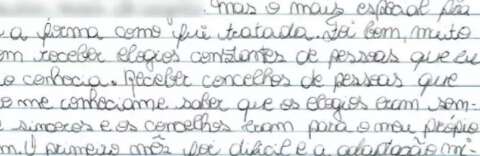 . mas o mais especial foi
a forma como fui tratada. Foi bom, muito
m receber elogios constantes de pessoas que eu
o conhecia. Receber concelhos de pessoas que
o me conheciam e saber que os elogios eram sem-
e sinceros e os concelhos eram para o meu própio
m. O primeiro mês foi difícil e a adaptação mi-